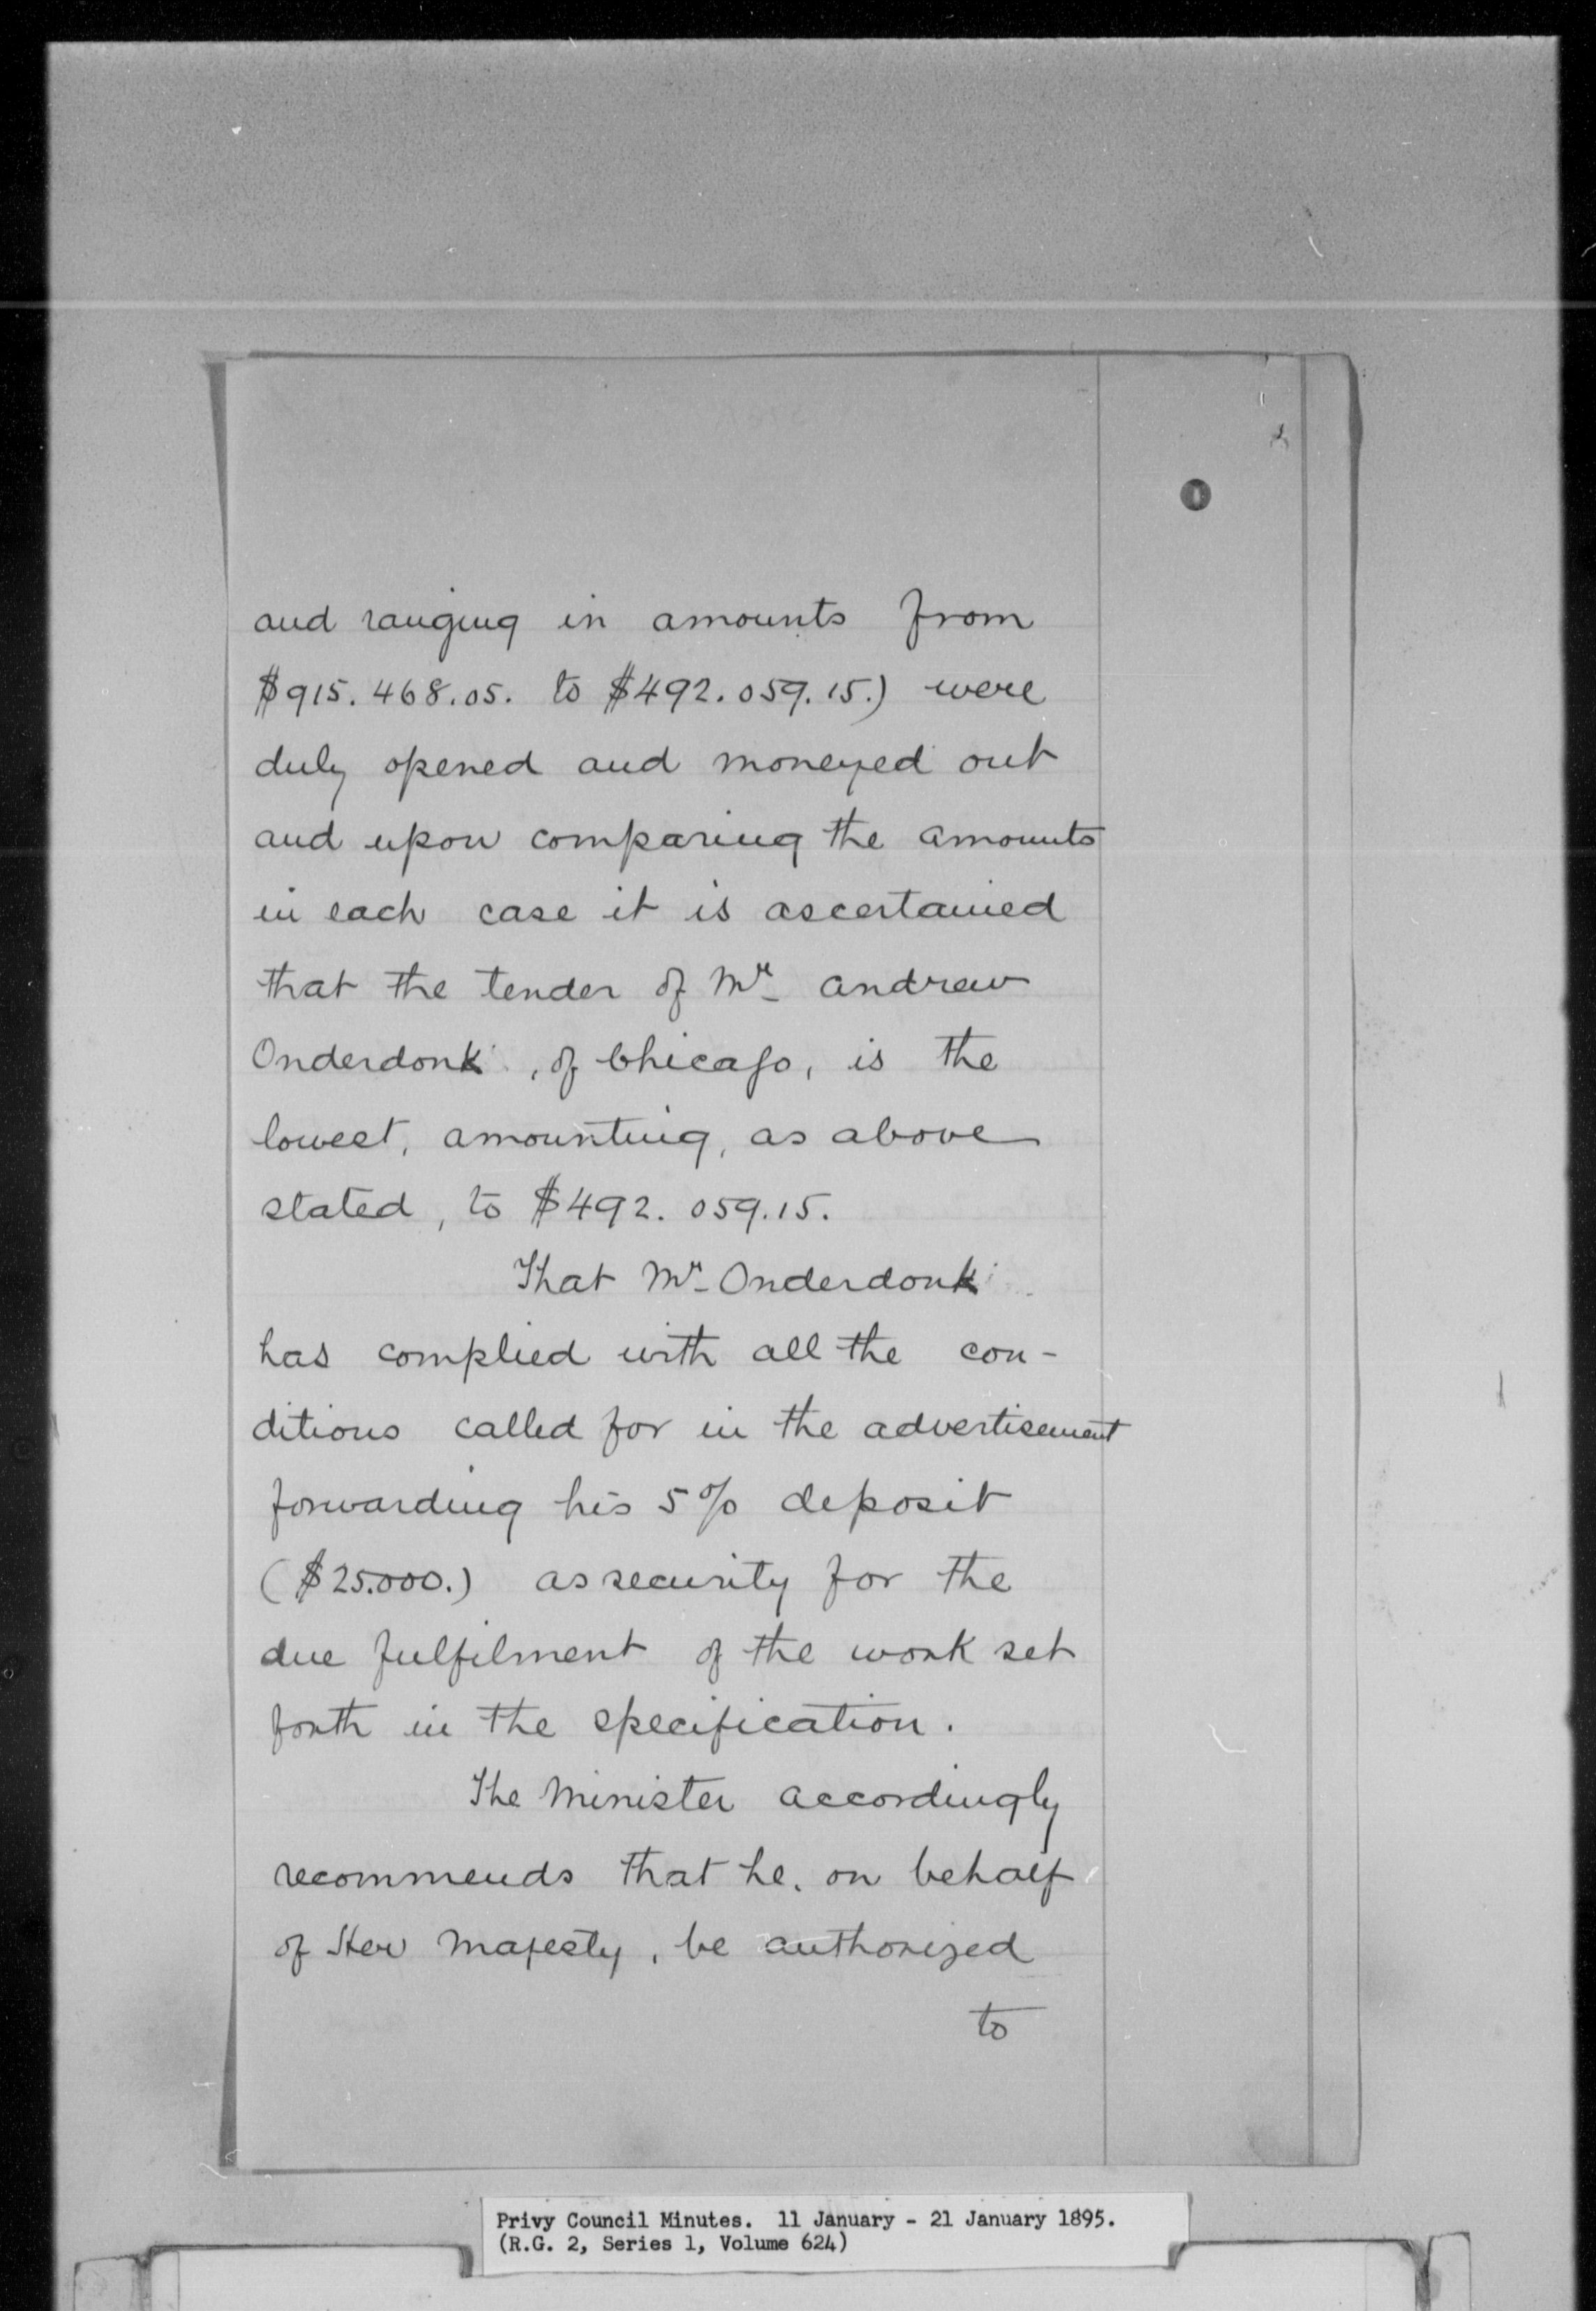 and ranging in amounts from
$915.468.05. to $492.059.15.) were
duly opened and moneyed out
and upon comparing the amounts
in each case it is ascertained
that the tender of Mr. Andrew
Onderdonk, of Chicago, is the
lowest, amounting, as above
stated, to $492.059.15.
That Mr. Onderdonk
has complied with all the con-
ditions called for in the advertisement
forwarding his 5% deposit
($25.000.) as security for the
due fulfilment of the work set
forth in the specification.
The Minister accordingly
recommends that he, on behalf
of Her Majesty, be authorized
to
Privy Council Minutes. 11 January - 21 January 1895.
(R.G. 2, Series 1, Volume 624)